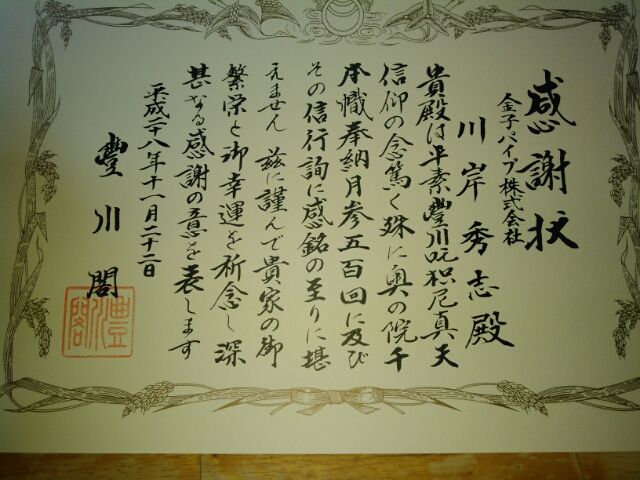 感謝状
金子パイプ株式会社
川岸秀志殿
貴殿は平素豊川吒枳尼真天
信仰の念篤く殊に奥の院千
本幟奉納月参五百回に及び
その信行洵に感銘の至りに堪
えません 茲に謹んで貴家の御
繁栄と御幸運を祈念し深
甚なる感謝の意を表します
平成二十八年十一月二十二日
豐川閣
豐川閣